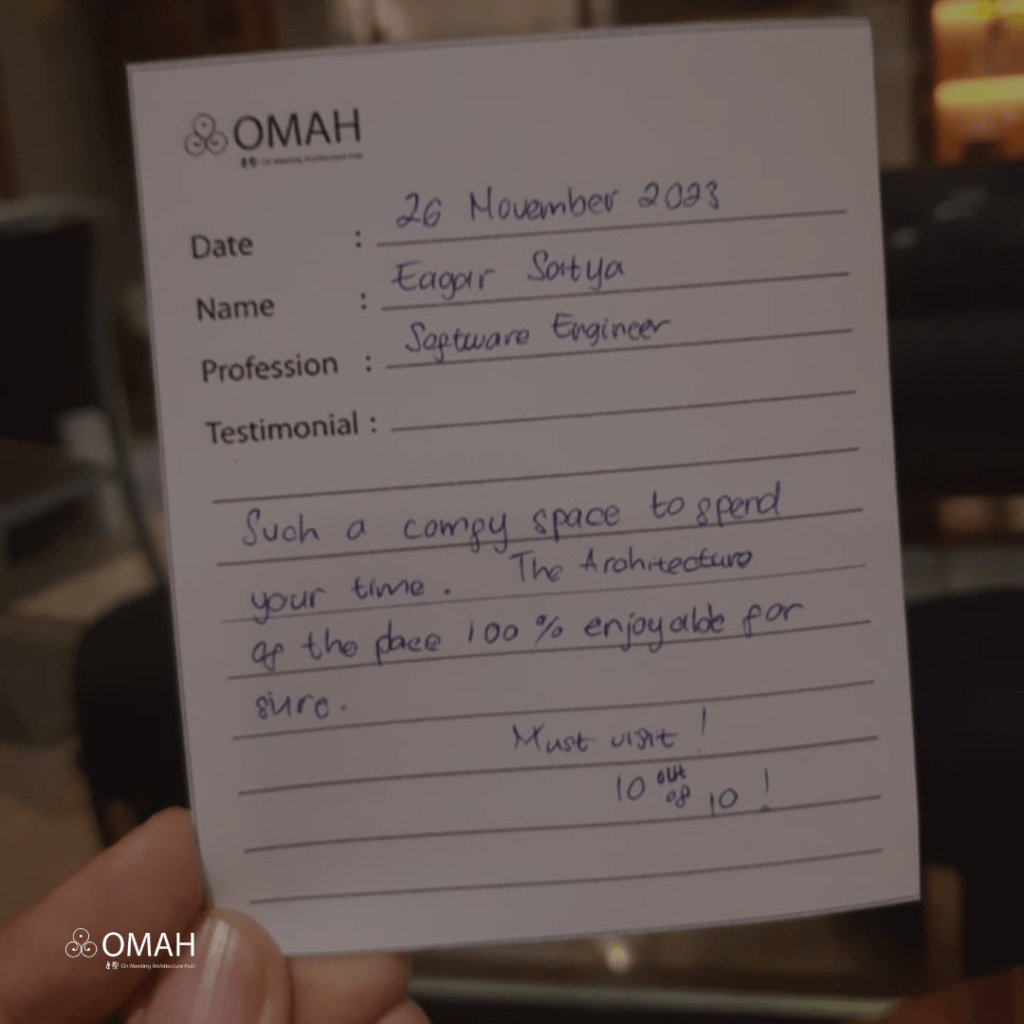 OMAH
On Meeting Architecture Hub
Date : 26 November 2023
Name : Eagar Satya
Profession : Software Engineer
Testimonial :
Such a comfy space to spend
your time. The Architecture
of the place 100% enjoyable for
sure.
Must visit!
10 out of 10!
OMAH
On Meeting Architecture Hub